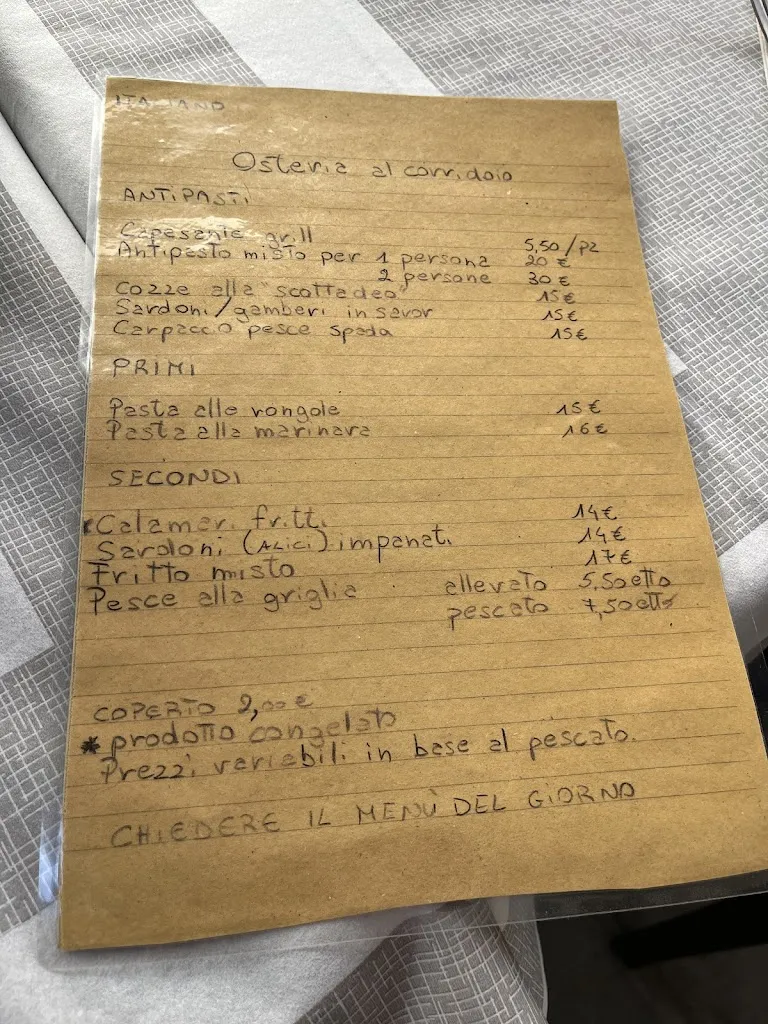 ITALIANO
Osteria al corridoio
ANTIPASTI
Capesante grill 5,50/pz
Antipasto misto per 1 persona 20 €
2 persone 30 €
Cozze alla "scottadeo" 15 €
Sardoni/gamberi in savor 15 €
Carpaccio pesce spada 15 €
PRIMI
Pasta alle vongole 15 €
Pasta alla marinara 16 €
SECONDI
*Calamari fritti 14 €
Sardoni (ALICI) impanati 14 €
Fritto misto 17 €
Pesce alla griglia allevato 5,50 etto
pescato 7,50 etto
COPERTO 2,00 €
* prodotto congelato
Prezzi variabili in base al pescato.
CHIEDERE IL MENÙ DEL GIORNO